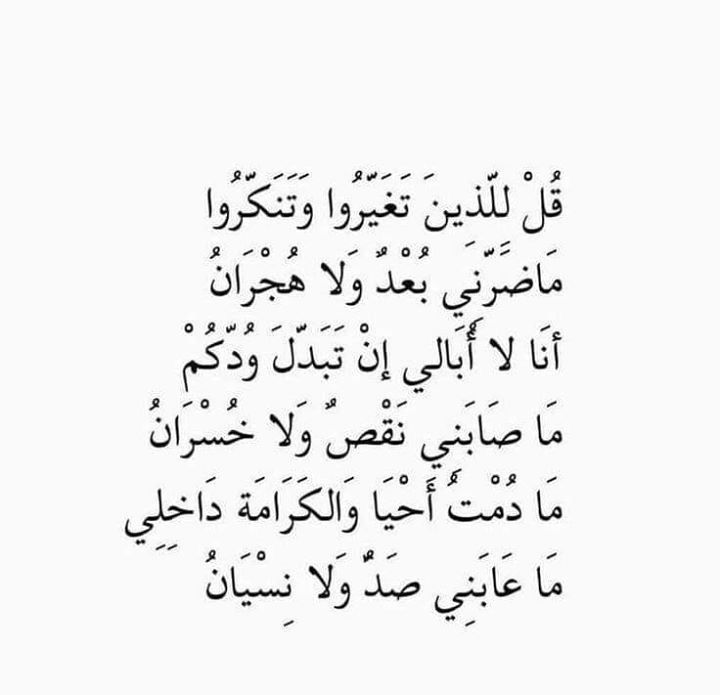 قُلْ لِلّذِينَ تَغَيّرُوا وَتَنَكّرُوا
مَاضَرّنِي بُعْدٌ وَلا هُجْرَانُ
أنَا لا أُبَالي إنْ تَبَدّلَ وُدّكُمْ
مَا صَابَنِي نَقْصٌ وَلا خُسْرَانُ
مَا دُمْتُ أَحْيَا وَالكَرَامَة دَاخِلِي
مَا عَابَنِي صَدٌّ وَلا نِسْيَانُ